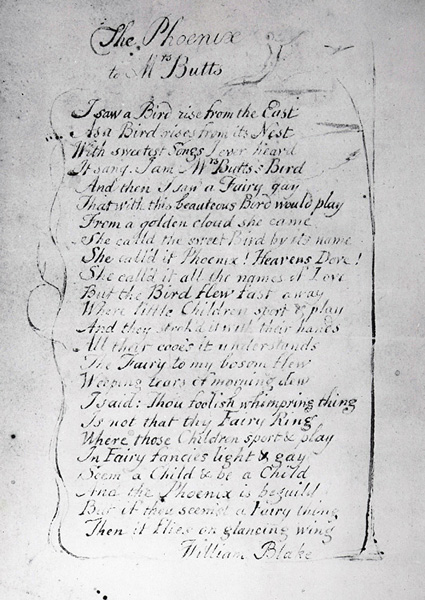 The Phoenix
to Mrs Butts
I saw a Bird rise from the East
As a Bird rises from its Nest
With sweetest Songs I ever heard
It sang I am Mrs Butts's Bird
And then I saw a Fairy gay
That with this beauteous Bird would play
From a golden cloud she came
She calld the sweet Bird by its name
She call'd it Phoenix! Heavens Dove!
She call'd it all the names of Love
But the Bird flew fast away
Where little Children sport & play
And they strok'd it with their hands
All their cooe's it understands
The Fairy to my bosom flew
Weeping tears of morning dew
I said: Thou foolish whimpring thing
Is not that thy Fairy Ring
Where those Children sport & play
In Fairy fancies light & gay
Seem a Child & be a Child
And the Phoenix is beguild
But if thou seem a Fairy thing
Then it flies on glancing wing
William Blake